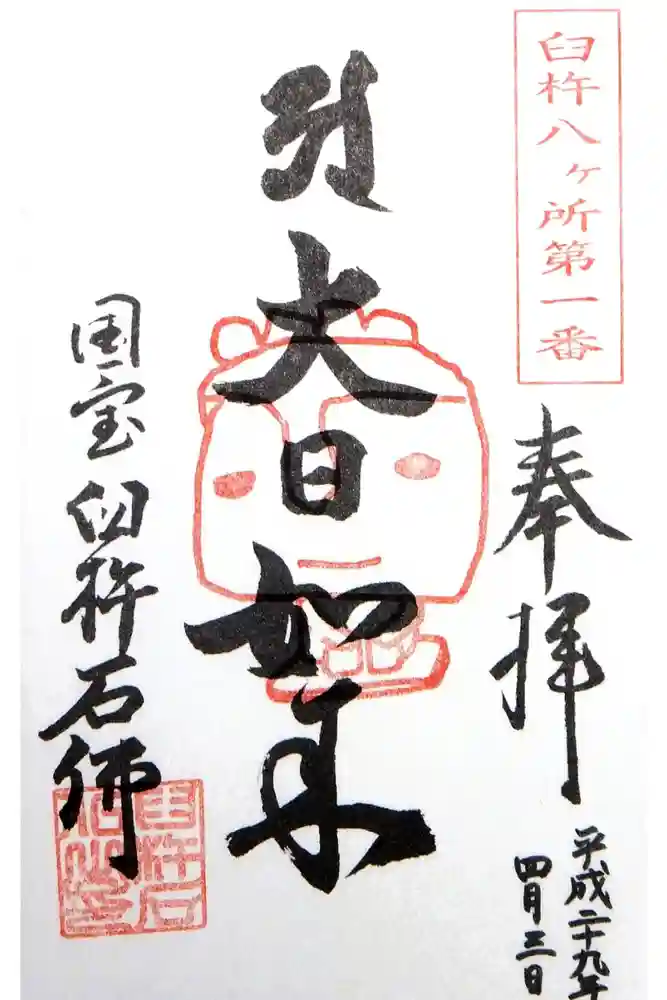 臼杵八ヶ所第一番
奉拝
平成二十九年
四月三日
大日如来
国宝臼杵石佛